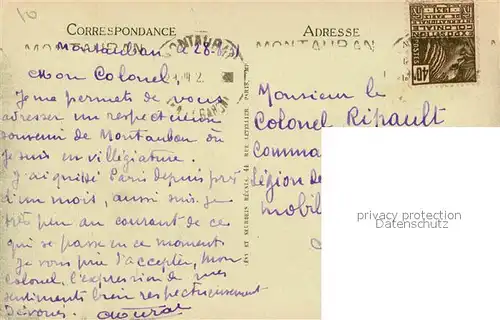 CORRESPONDANCE
Montauban le 28-
Mon Colonel,
Je me permets de vous
adresser un respectueux
souvenir de Montauban où
je suis en villégiature.
J'ai quitté Paris depuis près
d'un mois, aussi suis-je
très peu au courant de ce
qui se passe en ce moment.
Je vous prie d'accepter, mon
Colonel, l'expression de mes
sentiments bien respectueusement
Dévoués.
ADRESSE
MONTAUBAN
Monsieur le
Colonel Ripault
Comma
Légion de
mobil
privacy protection
Datenschutz